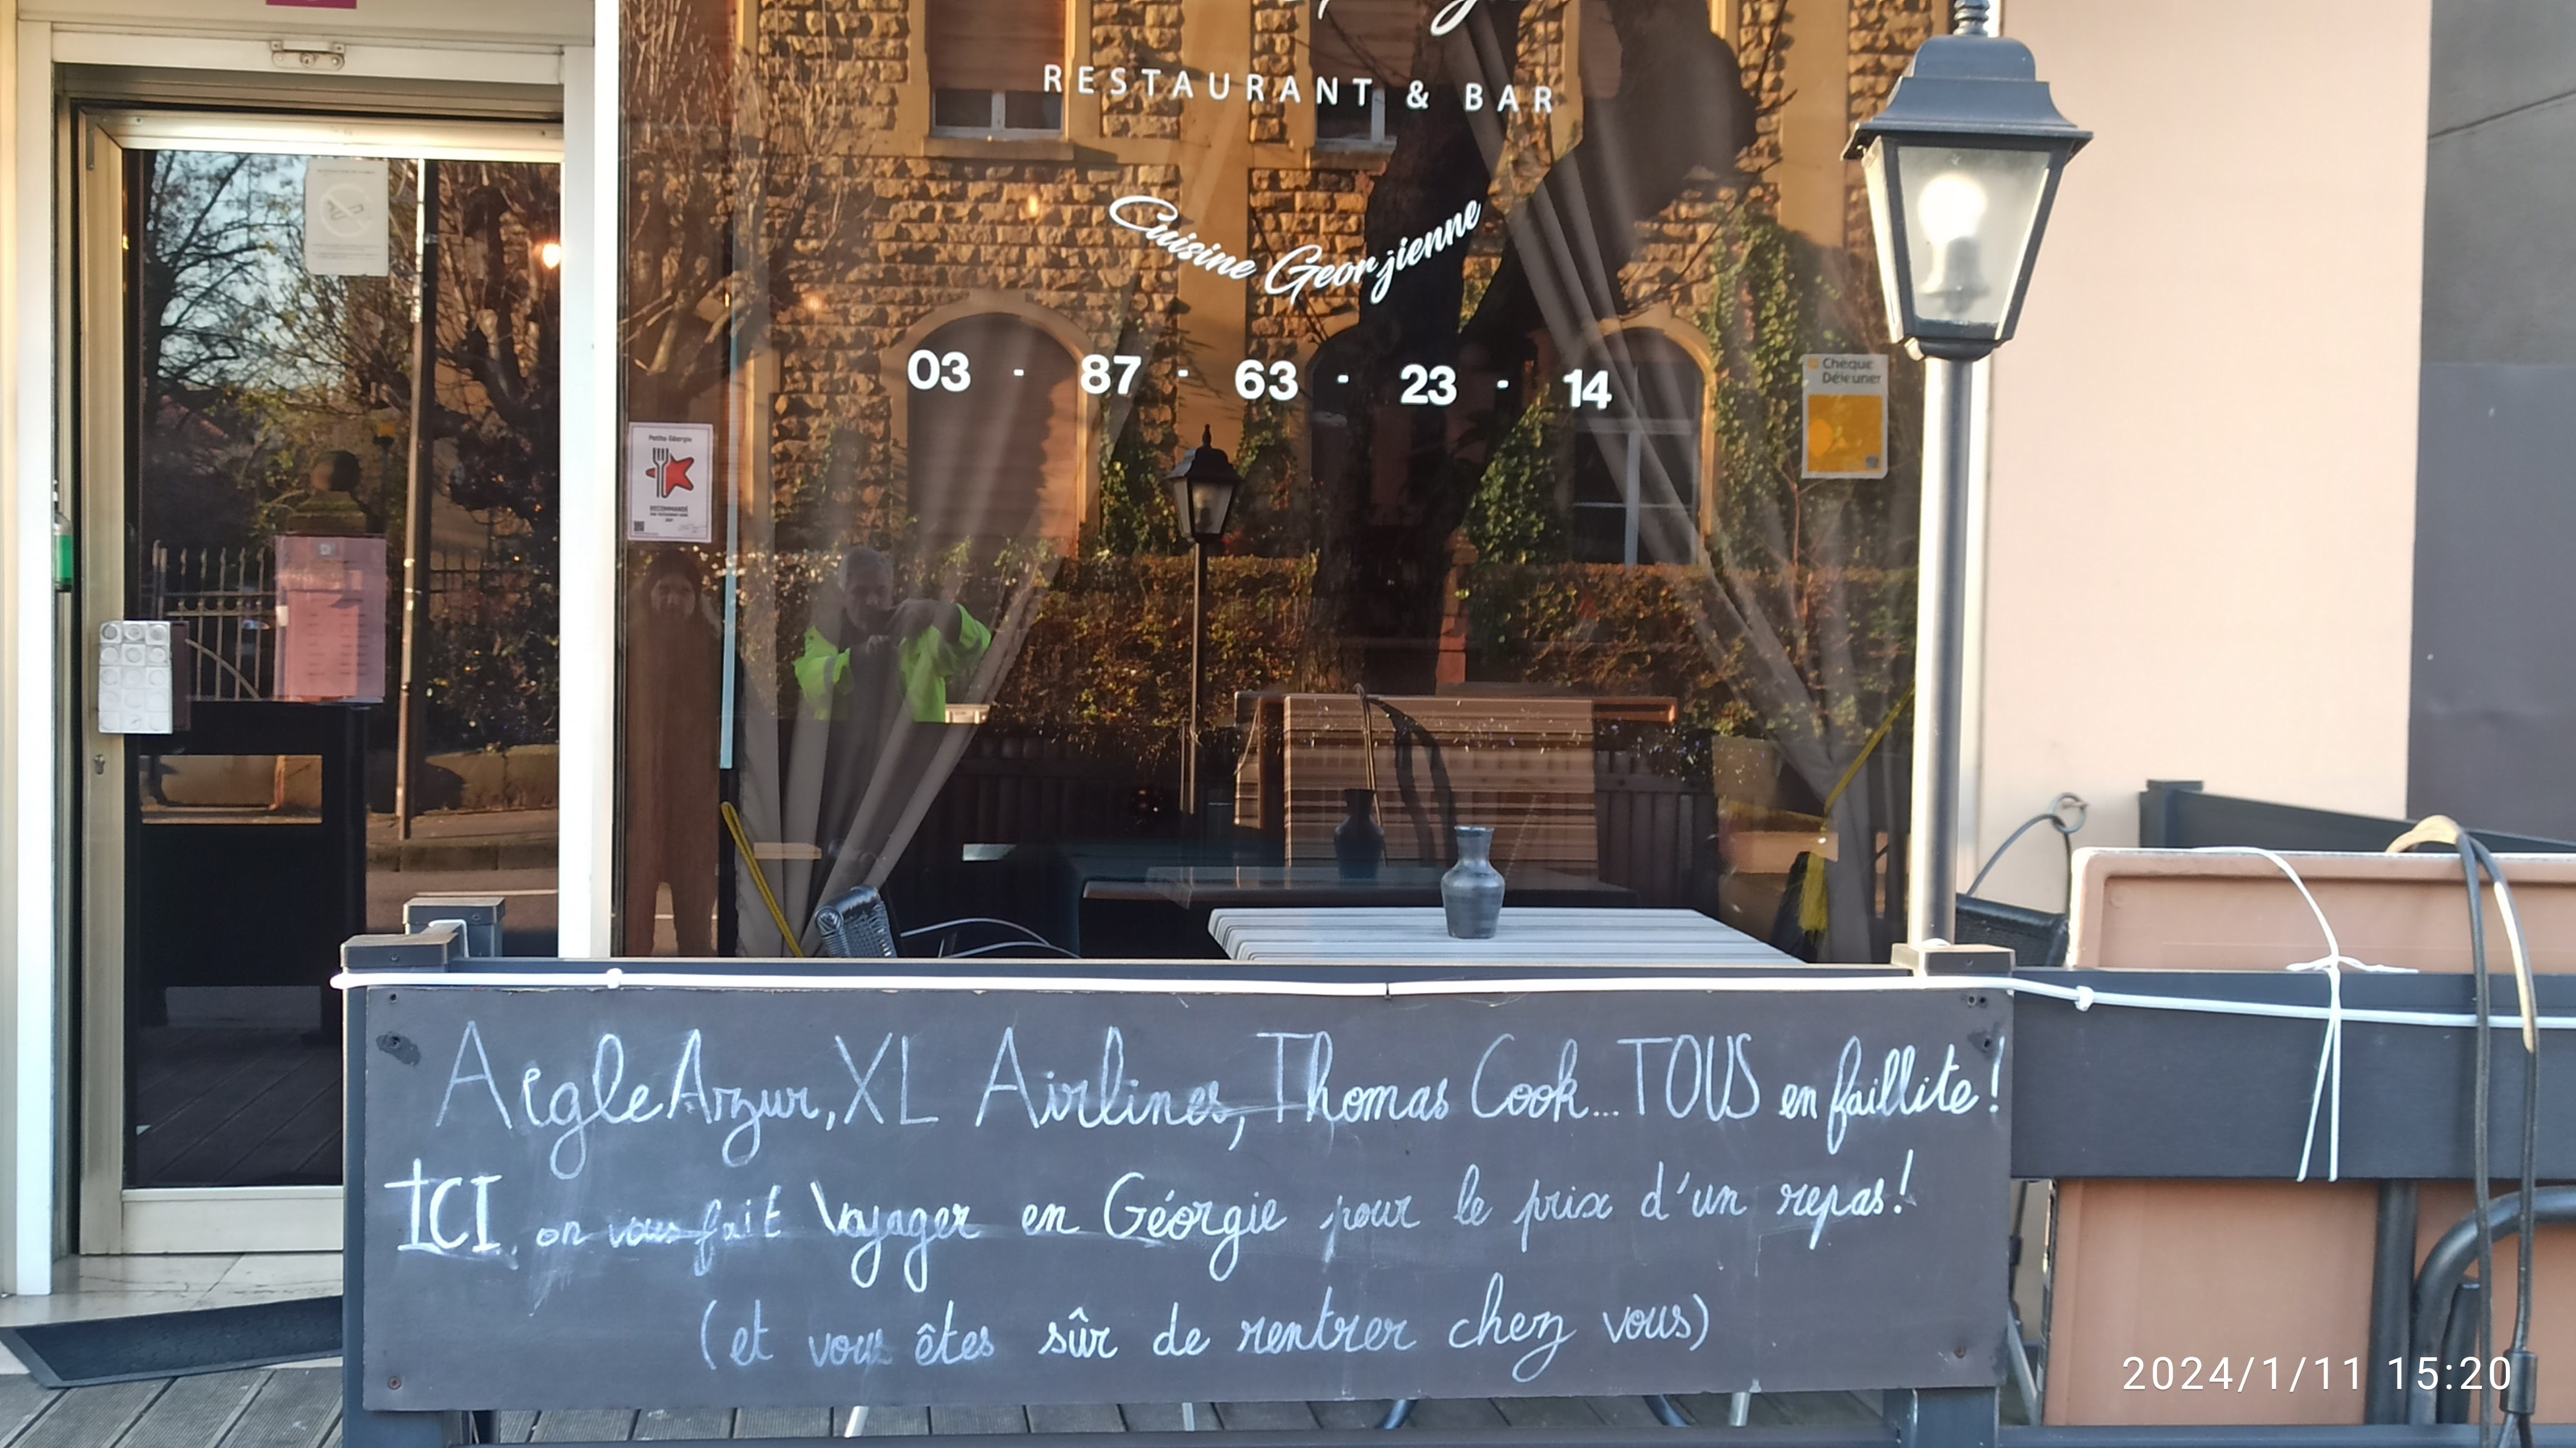 RESTAURANT & BAR
Cuisine Georjienne
03 - 87 - 63 - 23 - 14
Chèque
Déjeuner
Petite Géorgie
RECOMMANDÉ
Aigle Azur, XL Airlines, Thomas Cook... TOUS en faillite!
ICI, on vous fait Voyager en Géorgie pour le prix d'un repas!
(et vous êtes sûr de rentrer chez vous)
2024/1/11 15:20